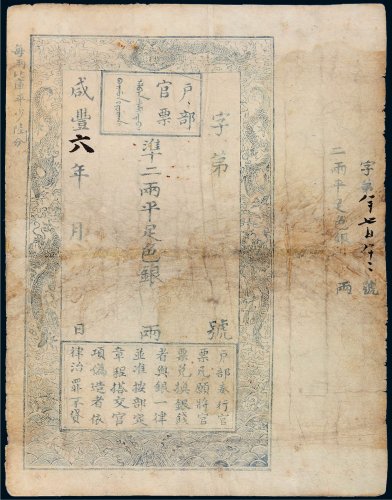 字第八千七百八十二號
二兩平足色銀 兩
戶部
官票
字第 號
準二兩平足色銀 兩
咸豐六年 月 日
戶部奏行官
票凡願將官
票兌換銀錢
者與銀一律
並准按部定
章程搭交官
項偽造者依
律治罪不貸
每兩比庫平少陸分